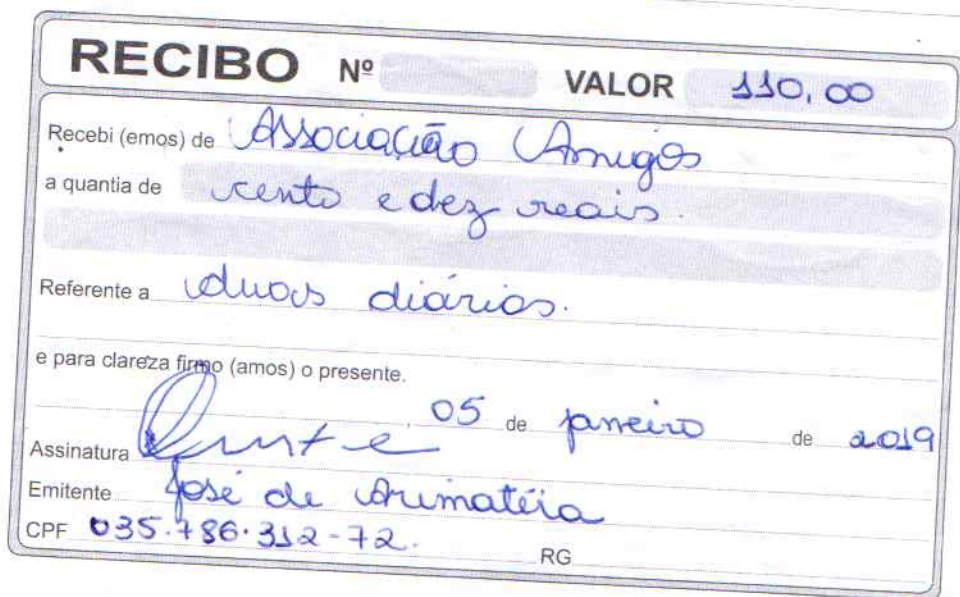 RECIBO Nº VALOR 110,00
Recebi (emos) de Associação Amigos
a quantia de cento e dez reais.
Referente a duas diárias.
e para clareza firmo (amos) o presente.
, 05 de janeiro de 2019
Assinatura
Emitente José de Arimatéia
CPF 035.786.312-72. RG